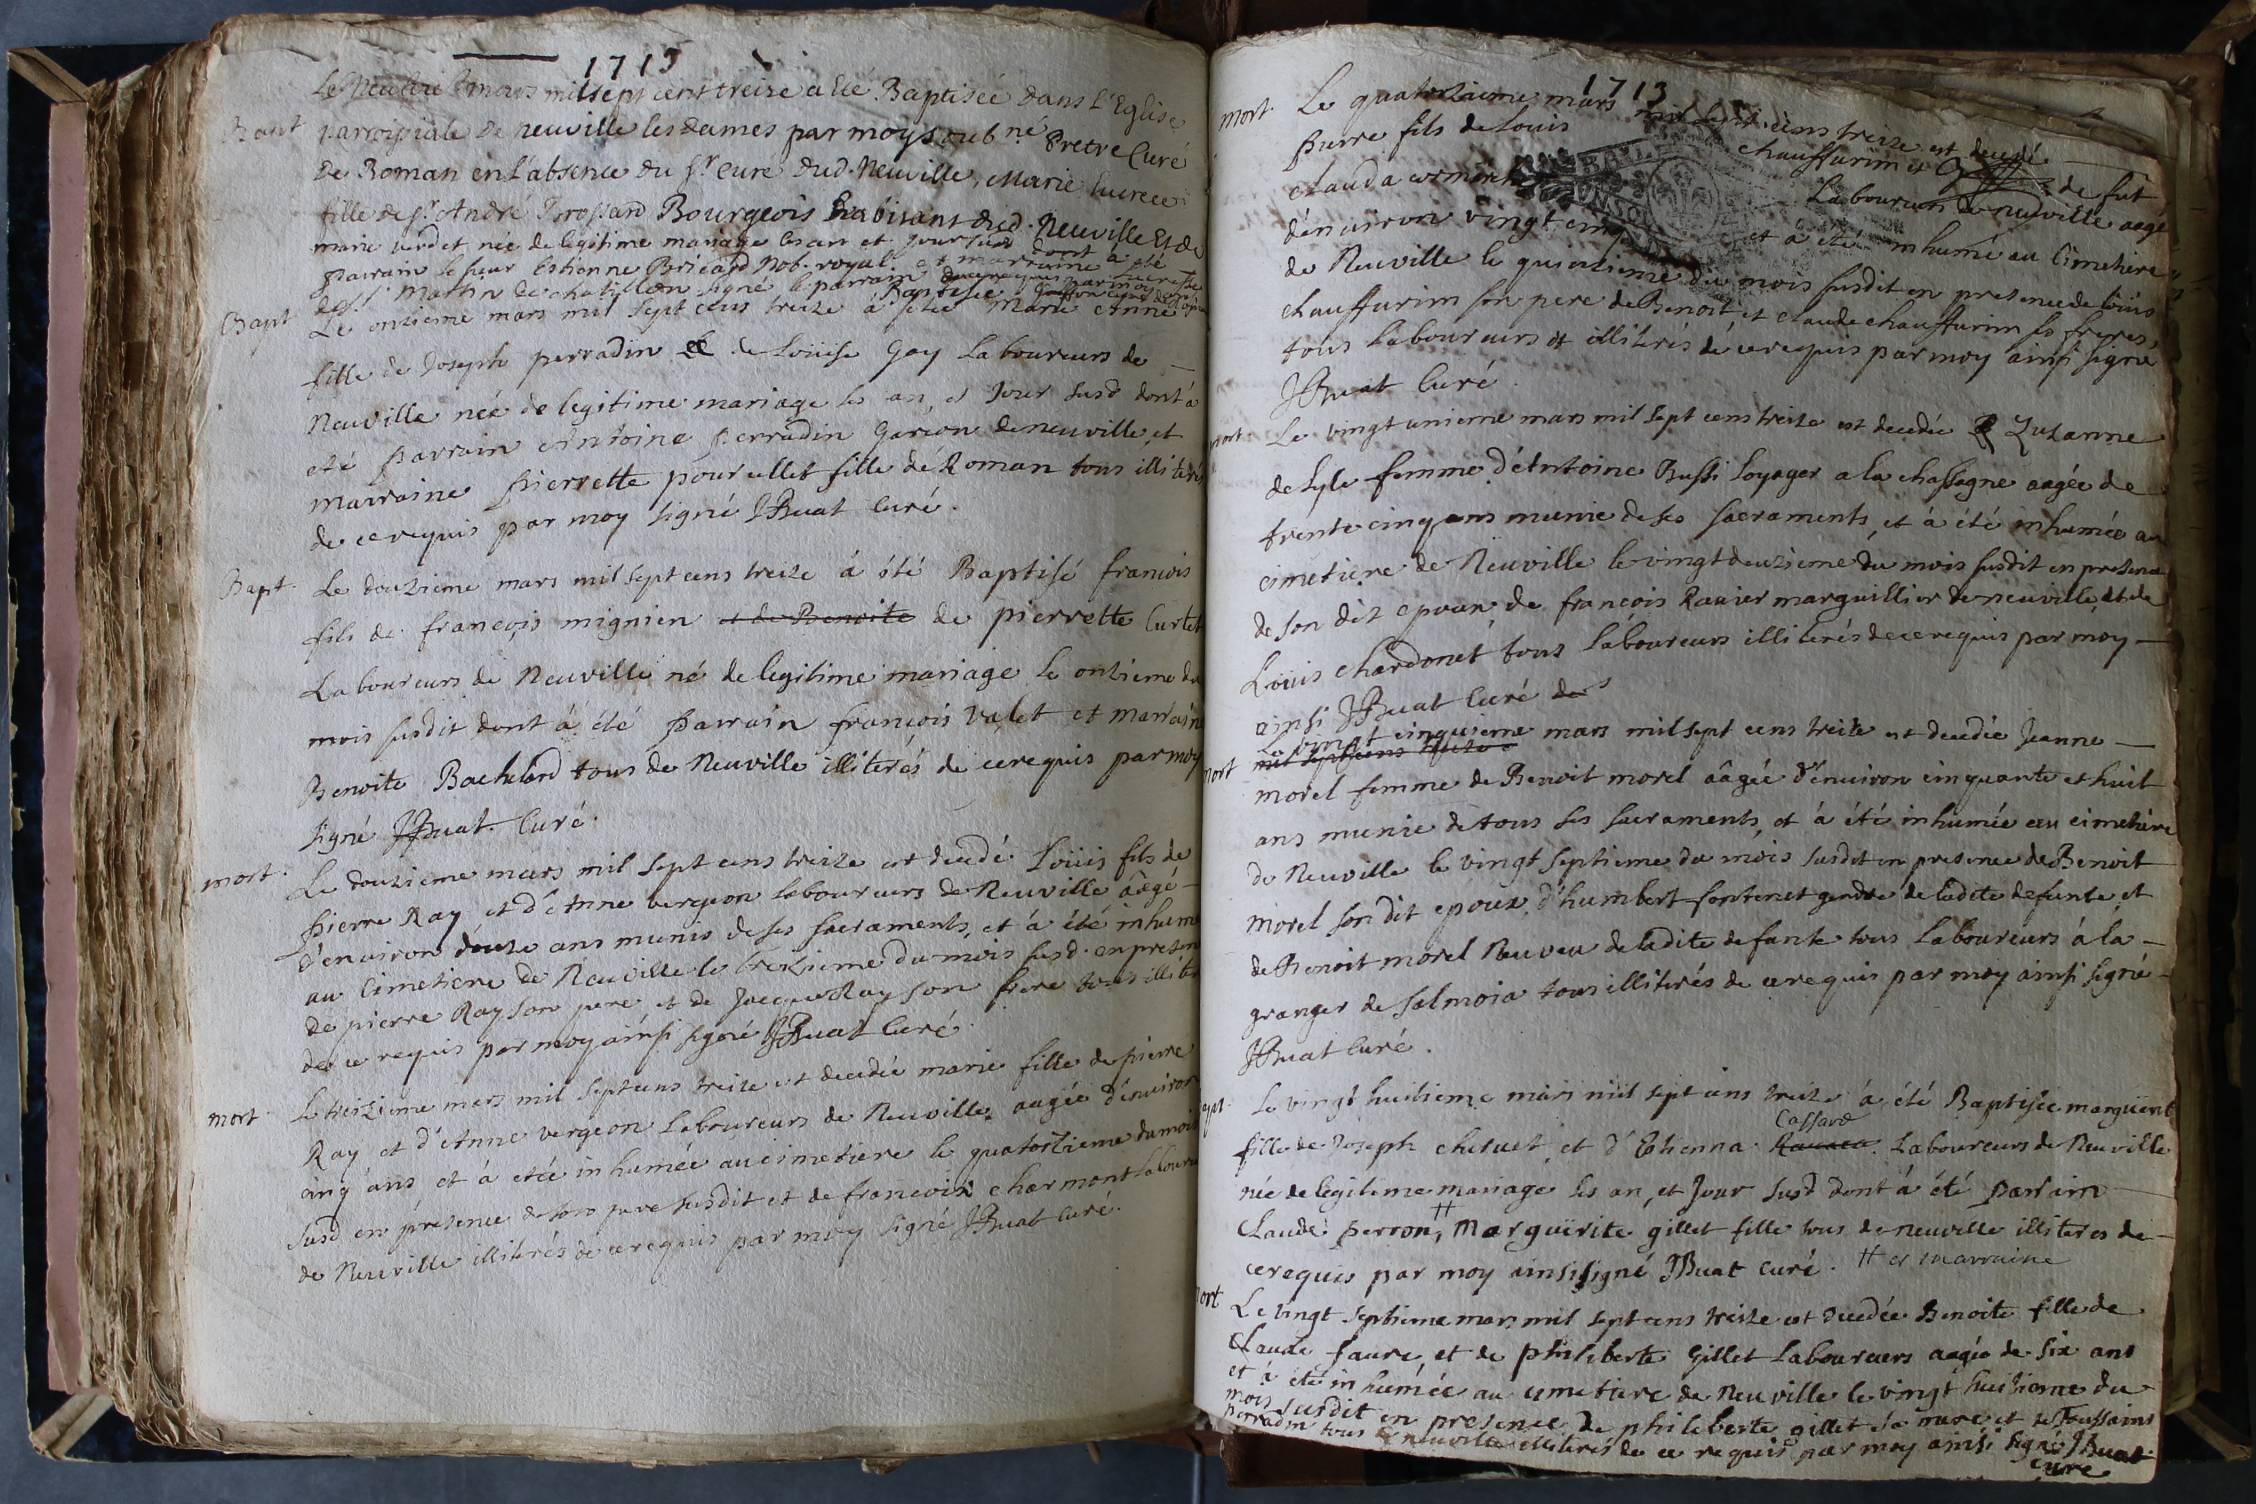 1713
Le neuvie mars mil sept cent treize a Eté Baptisée dans L'Eglise
Bapt parroissiale de neuville les dames par moy soub né Pretre Curé
de Roman en l'absence du sr Curé dud. Neuville, Marie Lucrece
fille de sr André Brossard Bourgeois habitant dud. Neuville Et de
marie verdet née de legitime mariage les an et jour susd dont a eté
parrain le sieur Estienne Bricard Not. royal. et marraine
de s. Martin de chatillon signé le parrain
Bapt Le onzieme mars mil sept cens treize á eté Baptisée Marie Anne
fille de Joseph perradin et de Loüise Gay Laboureurs de
Neuville née de legitime mariage les an, et Jour susd dont á
eté parrain Antoine perradin Garçon de neuville et
marraine pierrette pourcellet fille dé Roman tous illiterés
de ce requis par moy signé JBuat Curé.
Bapt. Le douzieme mars mil sept cens treize á été Baptisé francois
fils de françois mignien et de Benoite de pierrette Curtet
Laboureurs de Neuville né de legitime mariage le onzieme du
mois susdit dont á été parrain françois valet et marraine
Benoite Bachelard tous de Neuville illiterés de ce requis par moy
signé JBuat Curé.
mort. Le douzieme mars mil sept cens treize est decedé Loüis fils de
pierre Ray et d'Anne vergeon laboureurs de Neuville âagé
d'environ douze ans munis de ses sacraments, et á été inhumé
au Cimetiere de Neuville le treizieme du mois susd. en presen
de pierre Ray son pere et de Jacque Ray son frere tous illite
de ce requis par moy ainsi signé JBuat Curé
mort. Le treizieme mars mil sept cens treize est decedée marie fille de pierre
Ray et d'Anne vergeon Laboureurs de Neuville aagée d'environ
cinq ans et á etée inhumée au cimetiere le quatorzieme du mois
susd en présence de son pere susdit et de francois charmont Laboure
de Neuville illiterés de ce requis par moy signé JBuat Curé.
1713
mort. Le quatorzieme mars mil sept cens treize est decedé
pierre fils de Louis chauffurim et de fut
clauda Laboureurs de neuville aagé
dénuiron vingt cinq et á eté inhumé au Cimetiere
de Neuville le quinzieme du mois susdit en presence de Loüis
chauffurim son pere de Benoit et claude chauffurim ss freres,
tous laboureurs et illiterés dé ce requis par moy ainsi signé
JBuat Curé.
mort Le vingt unieme mars mil sept cens treize est decedée Zuzanne
de lyle femme d'Antoine Bussi Loyager a la chassagne aagée de
trente cinq ans munie de ses sacraments, et á été inhumée au
cimetiere de Neuville le vingt deuzieme du mois susdit en presence
de son dit epoux, de françois Ravier marguillier de neuville, et de
Loüis chardonet tous laboureurs illiterés de ce requis par moy
ainsi JBuat Curé de
Le vingt cinquieme mars mil sept cens treize est decedée Jeanne
mil sept cens treize
mort morel femme de Benoit morel âagée d'enuiron cinquante et huit
ans munie de tous ses sacraments, et á été inhumée au cimetiere
de Neuville le vingt septieme du mois susdit en presence de Benoit
morel son dit epoux, d'humbert fontenet gendre de ladite defunte, et
de Benoit morel Neuveu de ladite defunte tous Laboureurs á la
granger de salmoia tous illiterés de ce requis par moy ainsi signé
JBuat Curé.
apt. Le vingt huitieme mars mil sept cens treize á été Baptisée marguerit
Cassard
fille de Joseph cheruet, et d'Ethienna Laboureurs de Neuville
née de legitime mariage les an, et Jour susd dont á été parrain
Claude perron, ++ Marguërite gillet fille tous de neuville illiteres de
ce requis par moy ainsi signé JBuat curé. ++ et marraine
mort Le vingt septieme mars mil sept cens treize est decedée Benoite fille de
Claude faure, et de philiberte Gillet Laboureurs aagée de six ans
et á été inhumée au cimetiere de Neuville le vingt huitieme du
mois susdit en presence de philiberte gillet sa mere et de Toussains
perradin tous de neuville illiterés de ce requis par moy ainsi signé JBuat
curé